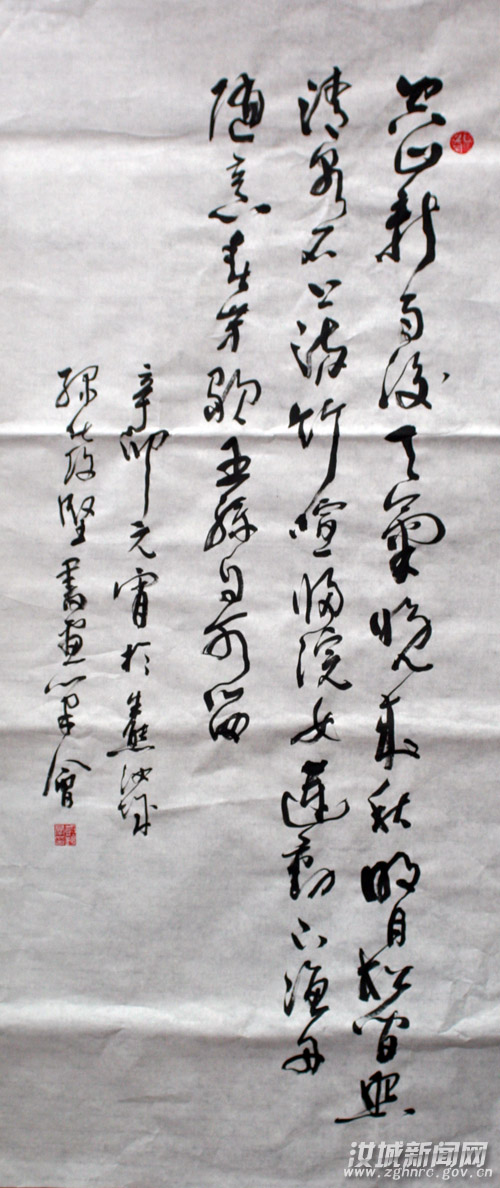 空山新雨後天氣晚來秋明月松間照
清泉石上流竹喧歸浣女蓮動下漁舟
隨意春芳歇王孫自可留
辛卯元宵於汝城
堅書畫筆會
汝城新闻网
www.zghnrc.gov.cn